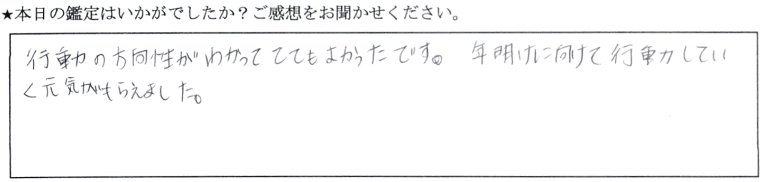 ★本日の鑑定はいかがでしたか？ご感想をお聞かせください。
行動の方向性がわかってとてもよかったです。年明けに向けて行動してい
く元気がもらえました。